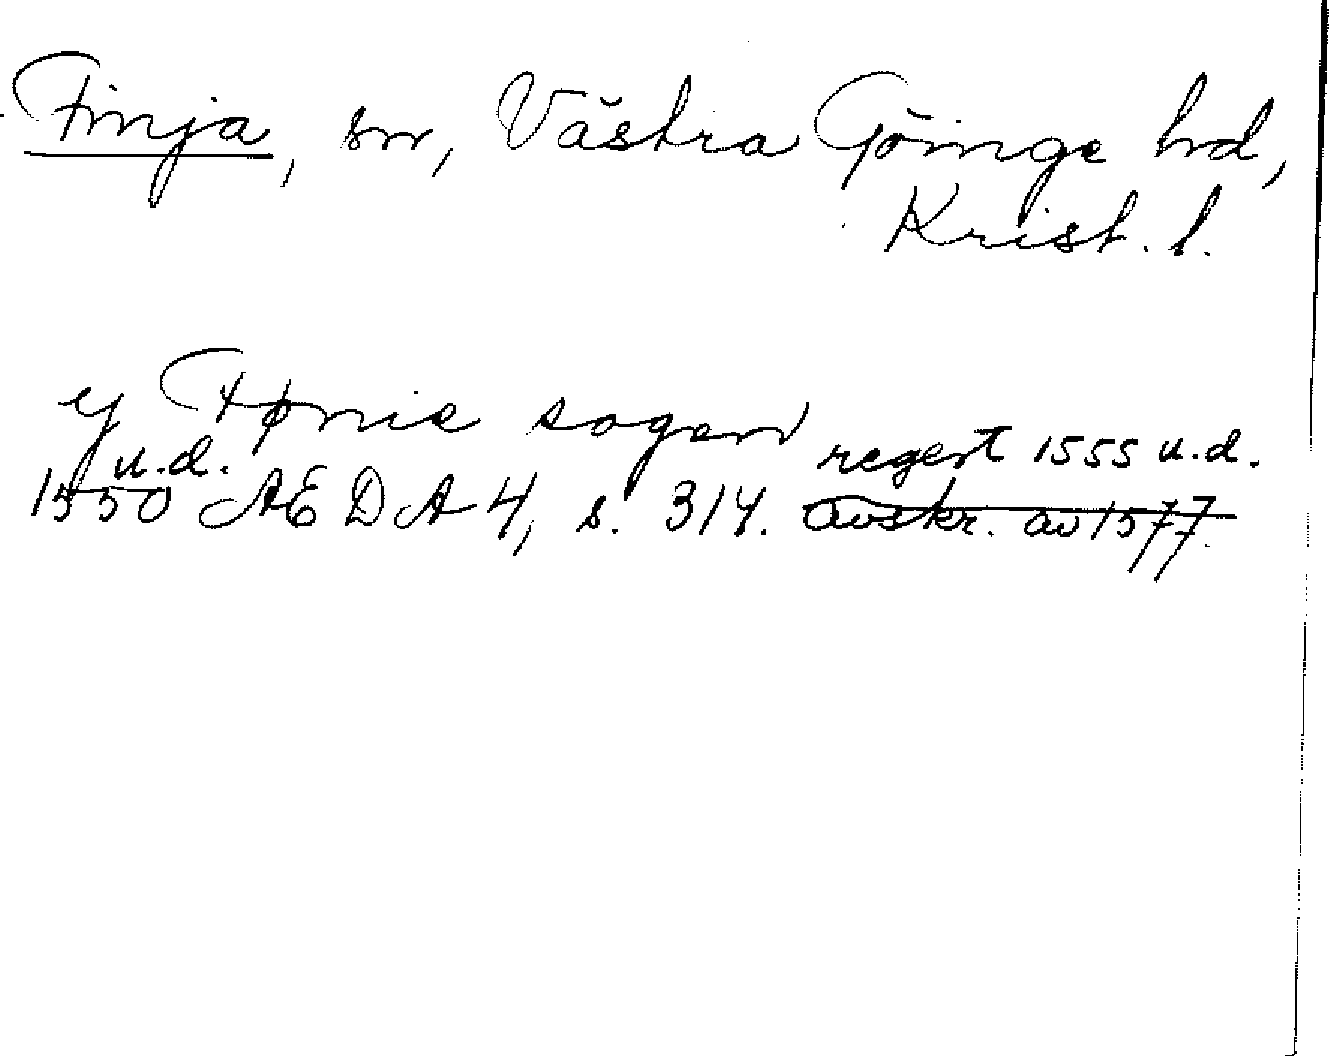 Finja, sn, Västra Göinge hd,
Krist. l.
y Fønie sogen regest 1555 u.d.
u.d.
1550 AEDA 4, s. 314. avskr. av 1577.